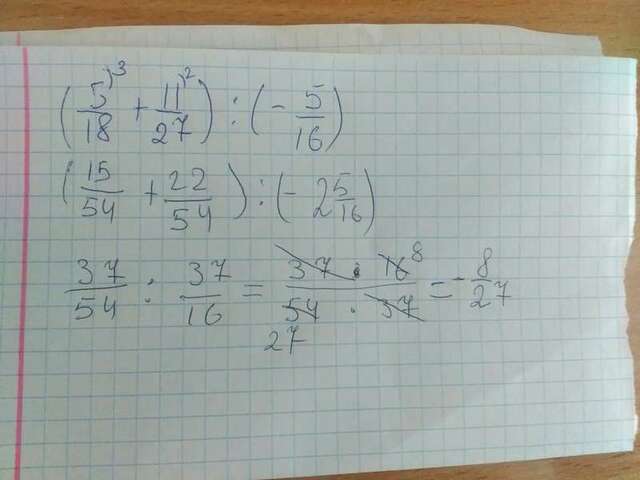 (5/18)³ + 11/27)²) : (- 5/16)
(15/54 + 22/54) : (- 2 5/16)
37/54 : 37/16 = 37 · 16 8 / 54 · 37 = - 8/27
27